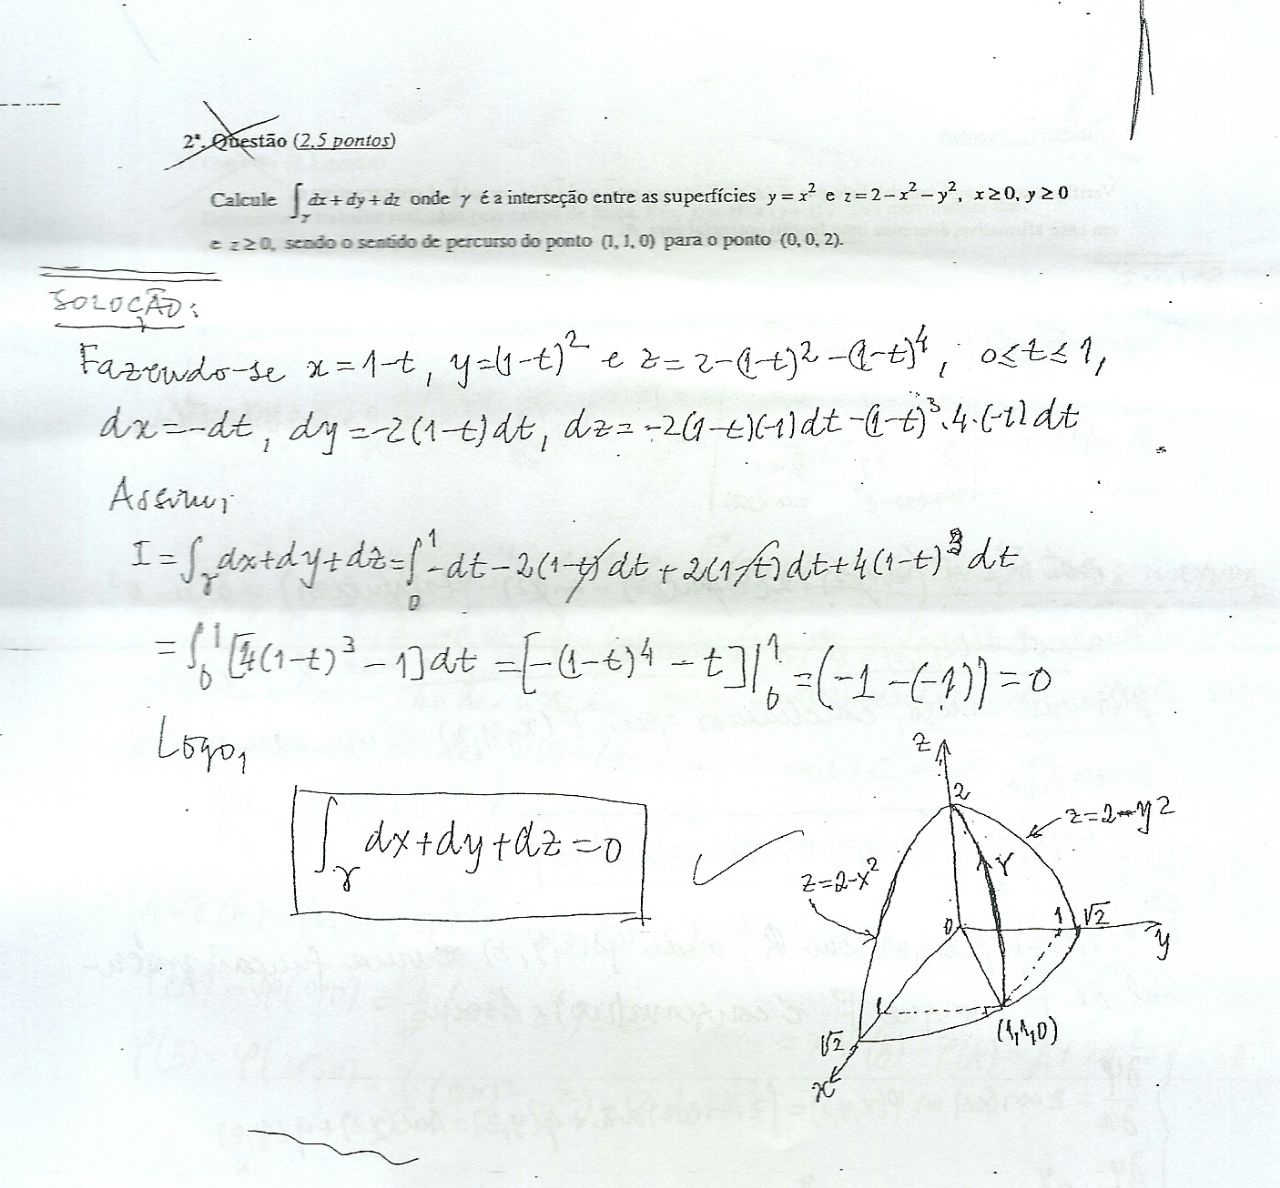 2ª. Questão (2,5 pontos)
Calcule ∫_γ dx + dy + dz onde γ é a interseção entre as superfícies y = x² e z = 2 − x² − y², x ≥ 0, y ≥ 0
e z ≥ 0, sendo o sentido de percurso do ponto (1, 1, 0) para o ponto (0, 0, 2).
SOLUÇÃO:
Fazendo-se x = 1-t, y = (1-t)² e z = 2-(1-t)²-(1-t)⁴, 0≤t≤1,
dx = -dt, dy = -2(1-t)dt, dz = -2(1-t)(-1)dt-(1-t)³.4.(-1)dt
Assim,
I = ∫_γ dx+dy+dz = ∫₀¹ -dt-2(1-t)dt+2(1-t)dt+4(1-t)³dt
= ∫₀¹ [4(1-t)³-1]dt = [-(1-t)⁴-t]|₀¹ = (-1-(-1)) = 0
Logo,
∫_γ dx+dy+dz = 0
z
2
z=2-y²
z=2-x²
γ
0
1
√2
y
1
(1,1,0)
√2
x